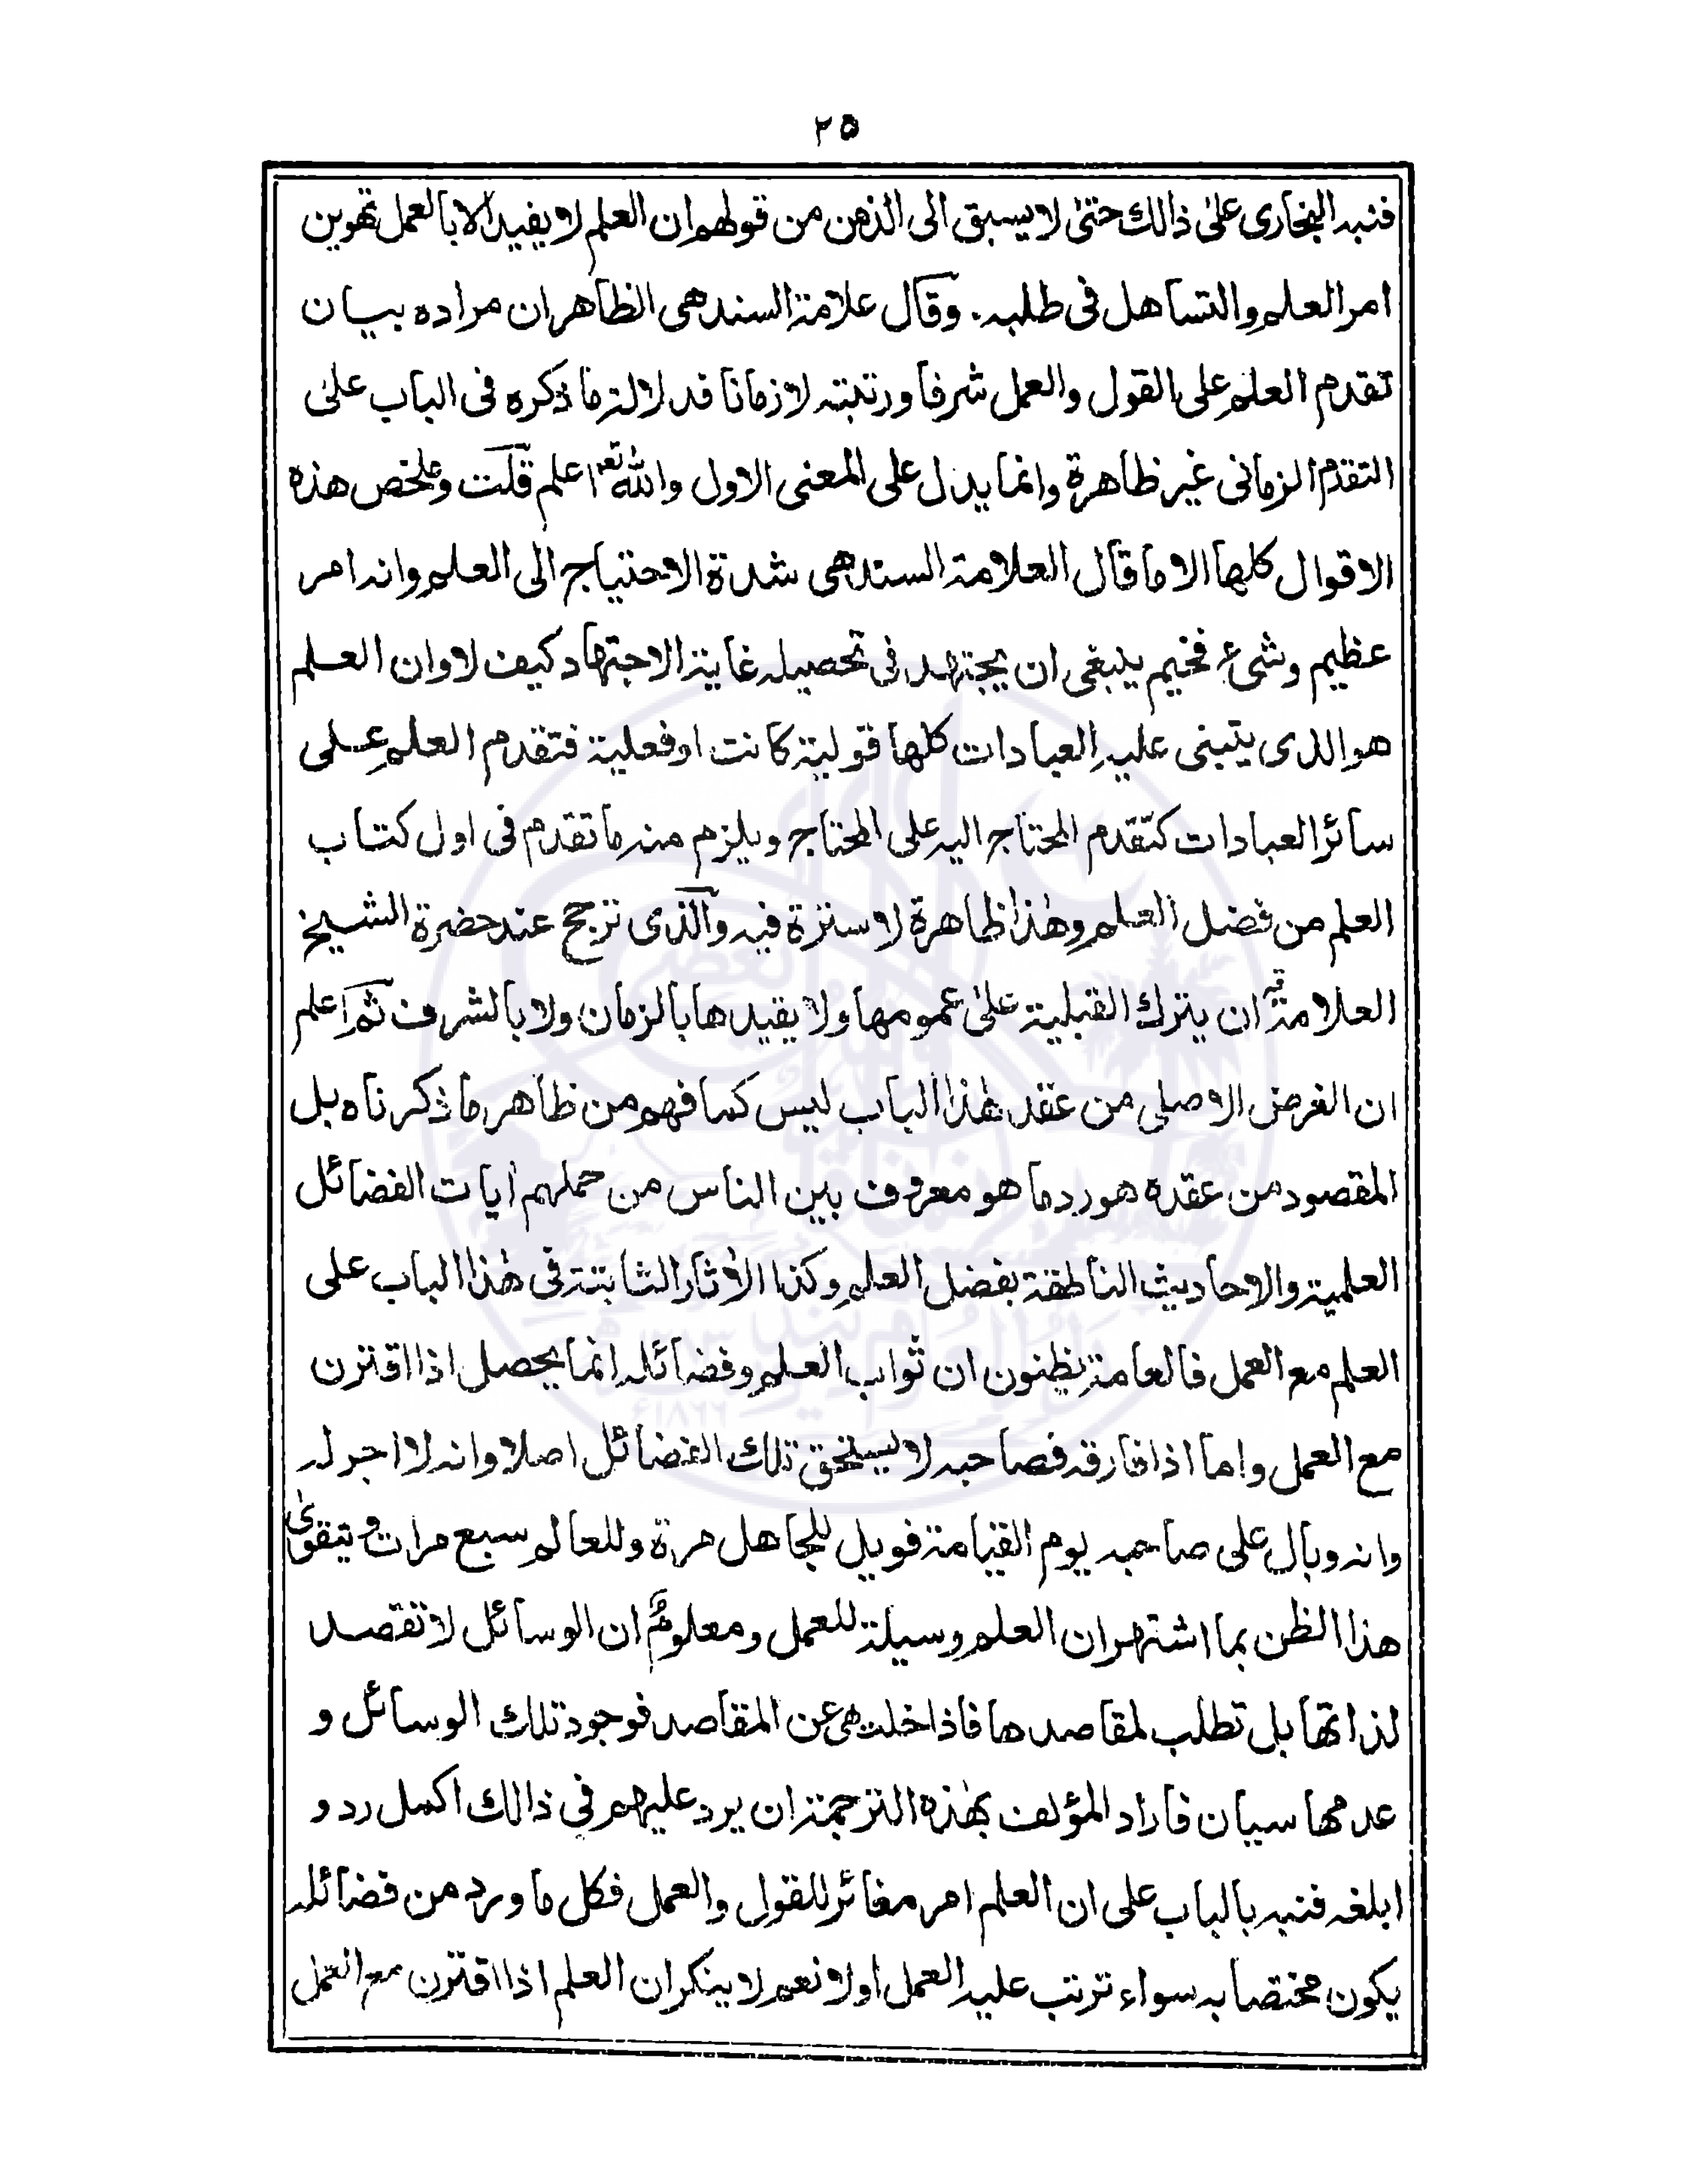 ٢٥
فنبه البخاری علیٰ ذالك حتیٰ لا یسبق الی الذهن من قولهم ان العلم لا یفید الا بالعمل تهوین
امر العلم والتساهل فی طلبه. وقال علامة السندهی الظاهر ان مراده بیان
تقدم العلم علی القول والعمل شرفا ورتبته لا زمانا فدلالة ما ذکره فی الباب علیٰ
التقدم الزمانی غیر ظاهرة وانما یدل علی المعنی الاول والله تعه اعلم قلت وملخص هذه
الاقوال کلها الا ما قال العلامة السندهی شدة الاحتیاج الی العلم وانه امر
عظیم وشیء فخیم ینبغی ان یجتهد فی تحصیله غایة الاجتهاد کیف لا وان العلم
هو الذی یتبنی علیه العبادات کلها قولیة کانت او فعلیة فتقدم العلم علی
سائر العبادات کتقدم المحتاج الیه علی المحتاج ویلزم منه ما تقدم فی اول کتاب
العلم من فضل العلم وهٰذا ظاهرة لا سترة فیه والذی ترجح عند حضرة الشیخ
العلامة ان یترك القبلیة علیٰ عمومها ولا یقیدها بالزمان ولا بالشرف ثم اعلم
ان الغرض الاصلی من عقد هٰذا الباب لیس کما فهم من ظاهر ما ذکرناه بل
المقصود من عقده هو رد ما هو معروف بین الناس من حملهم اٰیات الفضائل
العلمیة والاحادیث الناطقة بفضل العلم وکذا الاٰثار الثابتة فی هٰذا الباب علی
العلم مع العمل فالعامة یظنون ان ثواب العلم وفضائله انما یحصل اذا اقترن
مع العمل واما اذا فارقه فصاحبه لا یستحق تلك الفضائل اصلا وانه لا اجر له
وانه وبال علی صاحبه یوم القیامة فویل للجاهل مرة وللعالم سبع مرات ویتقویٰ
هذا الظن بما اشتهر ان العلم وسیلة للعمل ومعلومٌ ان الوسائل لا تقصد
لذاتها بل تطلب لمقاصدها فاذا خلت هی عن المقاصد فوجود تلك الوسائل و
عدمها سیان فاراد المؤلف بهٰذه الترجمة ان یرد علیهم فی ذالك اکمل رد و
ابلغه فنبه بالباب علی ان العلم امر مغائر للقول والعمل فکل ما ورد من فضائله
یکون مختصا به سواء ترتب علیه العمل او لا نعم لا ینکر ان العلم اذا اقترن مع العمل